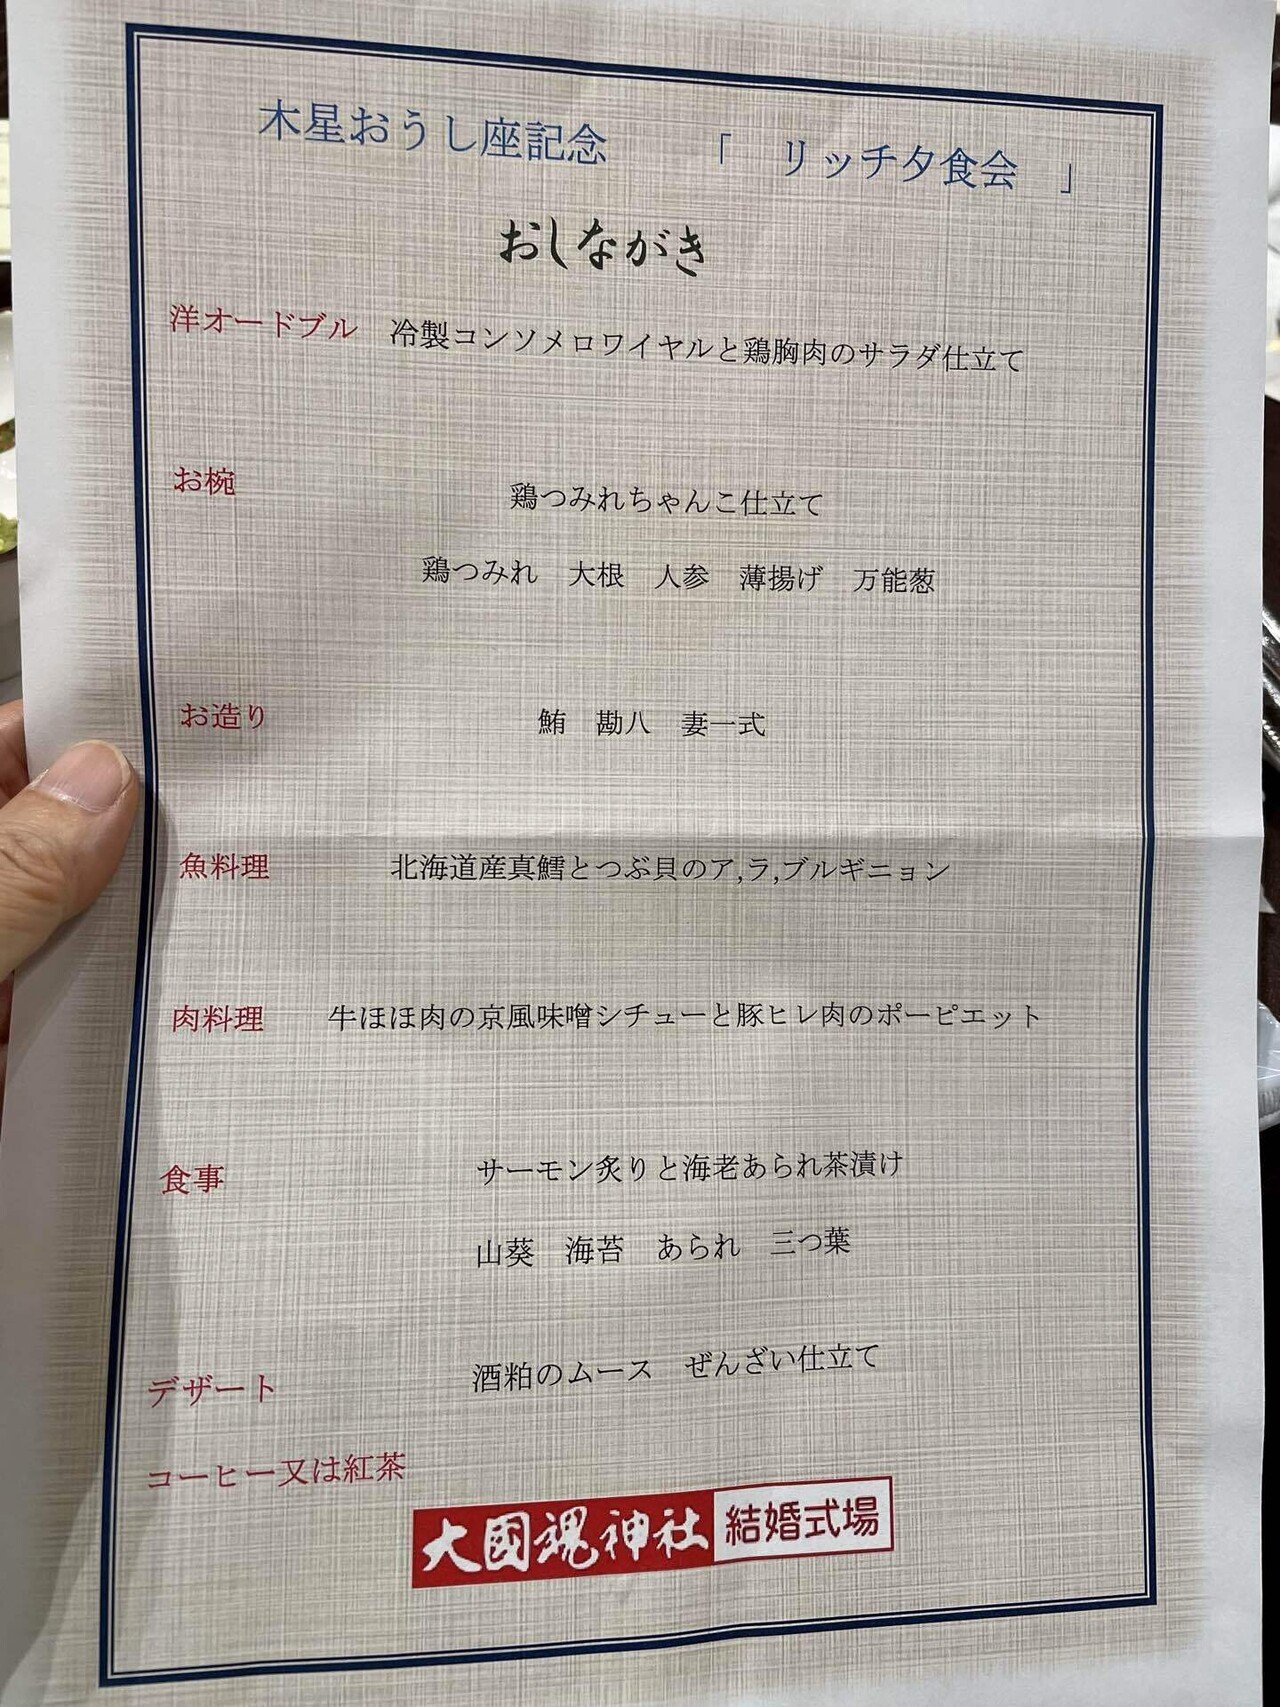 木星おうし座記念 「 リッチ夕食会 」
おしながき
洋オードブル 冷製コンソメロワイヤルと鶏胸肉のサラダ仕立て
お椀 鶏つみれちゃんこ仕立て
鶏つみれ 大根 人参 薄揚げ 万能葱
お造り 鮪 勘八 妻一式
魚料理 北海道産真鱈とつぶ貝のア,ラ,ブルギニョン
肉料理 牛ほほ肉の京風味噌シチューと豚ヒレ肉のポーピエット
食事 サーモン炙りと海老あられ茶漬け
山葵 海苔 あられ 三つ葉
デザート 酒粕のムース ぜんざい仕立て
コーヒー又は紅茶
大國魂神社 結婚式場